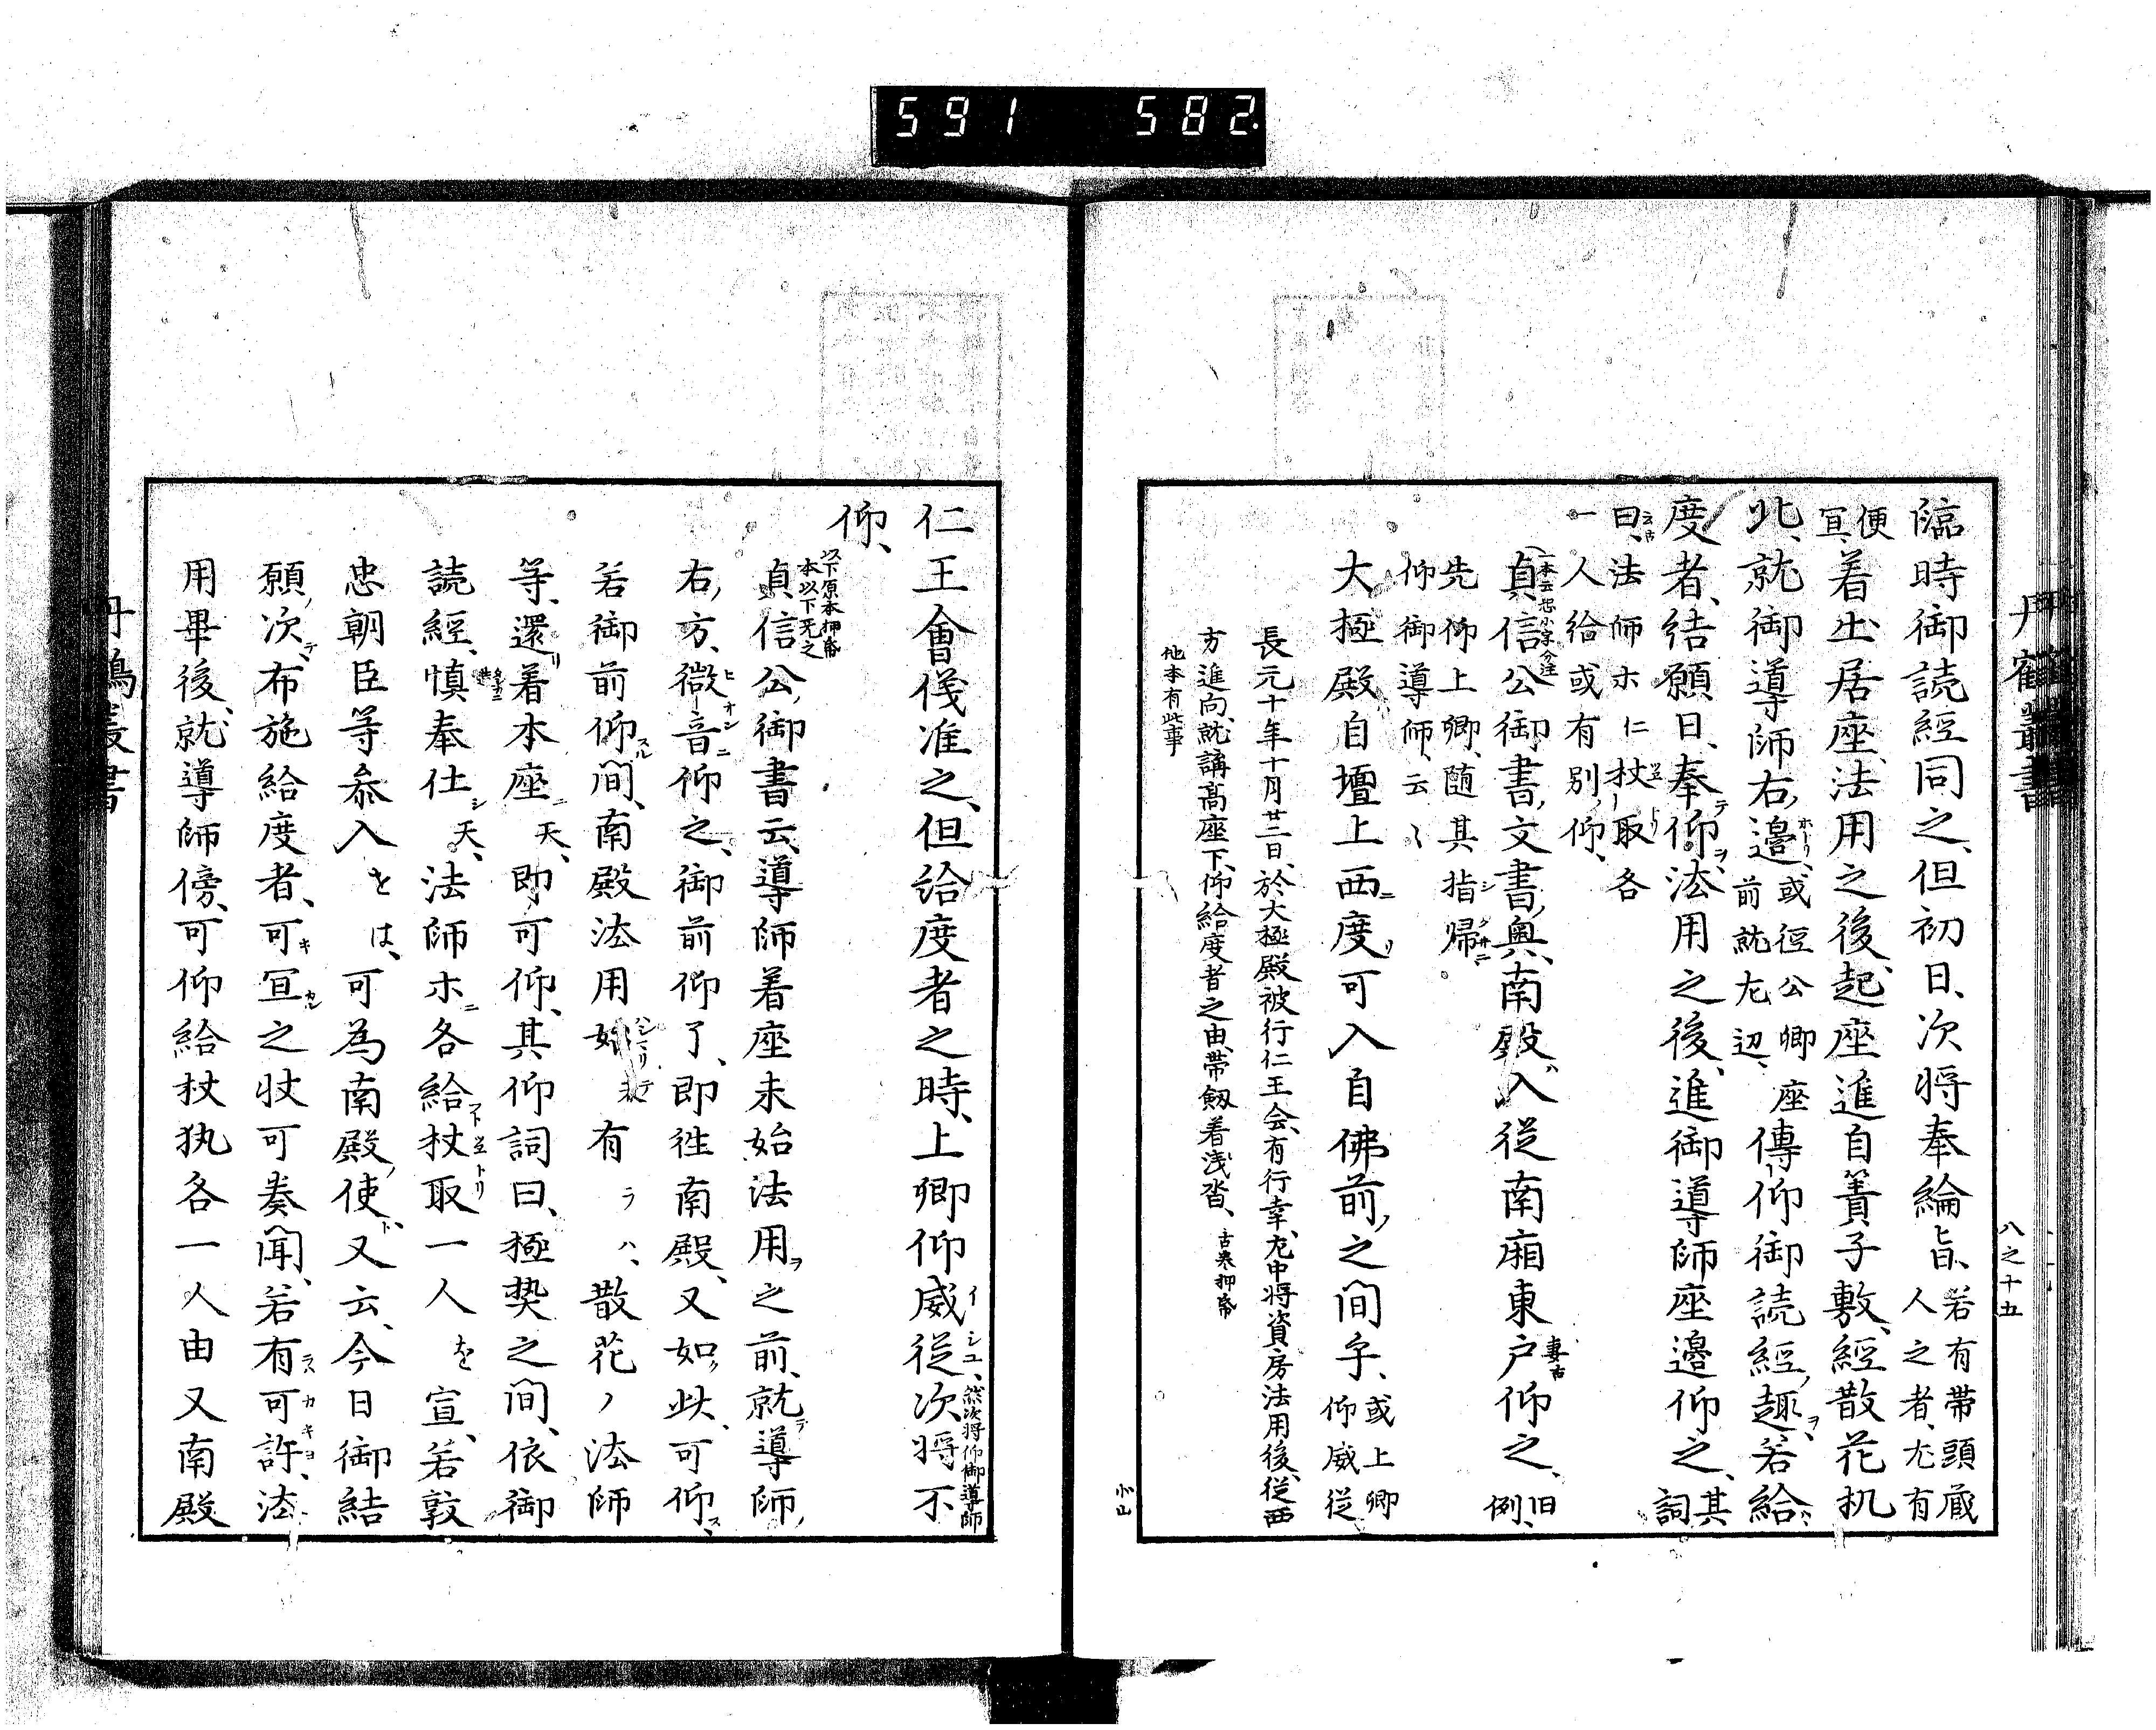 591 582
丹鶴叢書
八之十五
臨時御読經同之、但初日、次将奉綸旨、若有帯頭蔵人之者、尤有
便宜、着出居座、法用之後、起座進自簀子敷、經散花机
北、就御導師右邊、或侄公卿座前就尢辺、傳仰御読經趣、若給
度者、結願日、奉仰法用之後、進御導師座邊仰之、其詞
曰、法師ホ仁杖取各
一人給或有別仰、
貞信公御書文書奥、南殿入従南廂東戸仰之、旧例、
先仰上卿、随其指帰
仰御導師、云〻
大極殿自壇上西度可入自佛前之間乎、或上卿仰威従
長元十年十月廿二日、於大極殿被行仁王会、有行幸、尢中将資房法用後、従西
方進向、就講髙座下、仰給度者之由、帯劔着浅沓、古巻押帋
他本有此事
仁王會儀准之、但給度者之時、上卿仰威従、然次将仰御導師次将不
仰、
以下原本押帋
本以下无之
貞信公御書云、導師着座未始法用之前、就導師
右方、微音仰之、御前仰了、即徃南殿、又如此、可仰、
若御前仰間、南殿法用始有ラハ、散花ノ法師
等、還着本座天、即可仰、其仰詞曰、極𤍠之間、依御
読經、慎奉仕天、法師ホ各給杖取一人を宣、若敦
忠朝臣等叅入とは、可為南殿使、又云、今日御結
願、次布施給度者、可宣之状可奏聞、若有可許、法
用畢後、就導師傍、可仰給杖执各一人由又南殿
丹鶴叢書